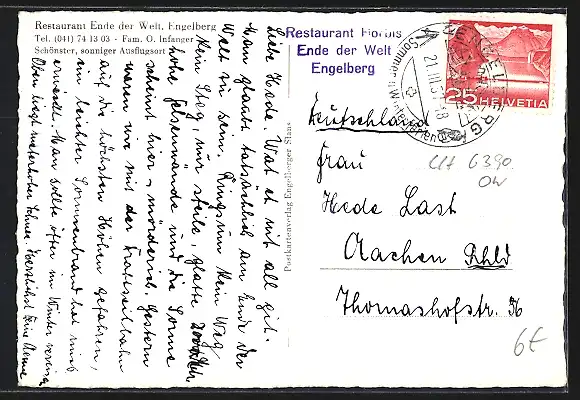 Restaurant Ende der Welt, Engelberg
Tel. (041) 74 13 03 - Fam. O. Infanger
Schönster, sonniger Ausflugsort
Liebe Hede. Wat et nit all git.
Man glaubt tatsächlich am Ende der
Welt zu sein. Ringsum kein Weg
kein Steg, nur steile, glatte
hohe Felsenwände und die Sonne
scheint hier mörderich. Gestern
waren wir mit der Drahtseilbahn
auf die höchsten Höhen gefahren,
ein leichter Sonnenbrand hat uns
erwischt. Man sollte öfter im Winter
Oben liegt meterhoher Schnee. Herzlichst Deine
Postkartenverlag Engelberger Stans
Restaurant Horbis
Ende der Welt
Engelberg
ENGELBERG
21.III.5
Sommer
25 HELVETIA
Deutschland
CH 6390
OW
Frau
Hede Last
Aachen Rhld
Thomashofstr.
6€